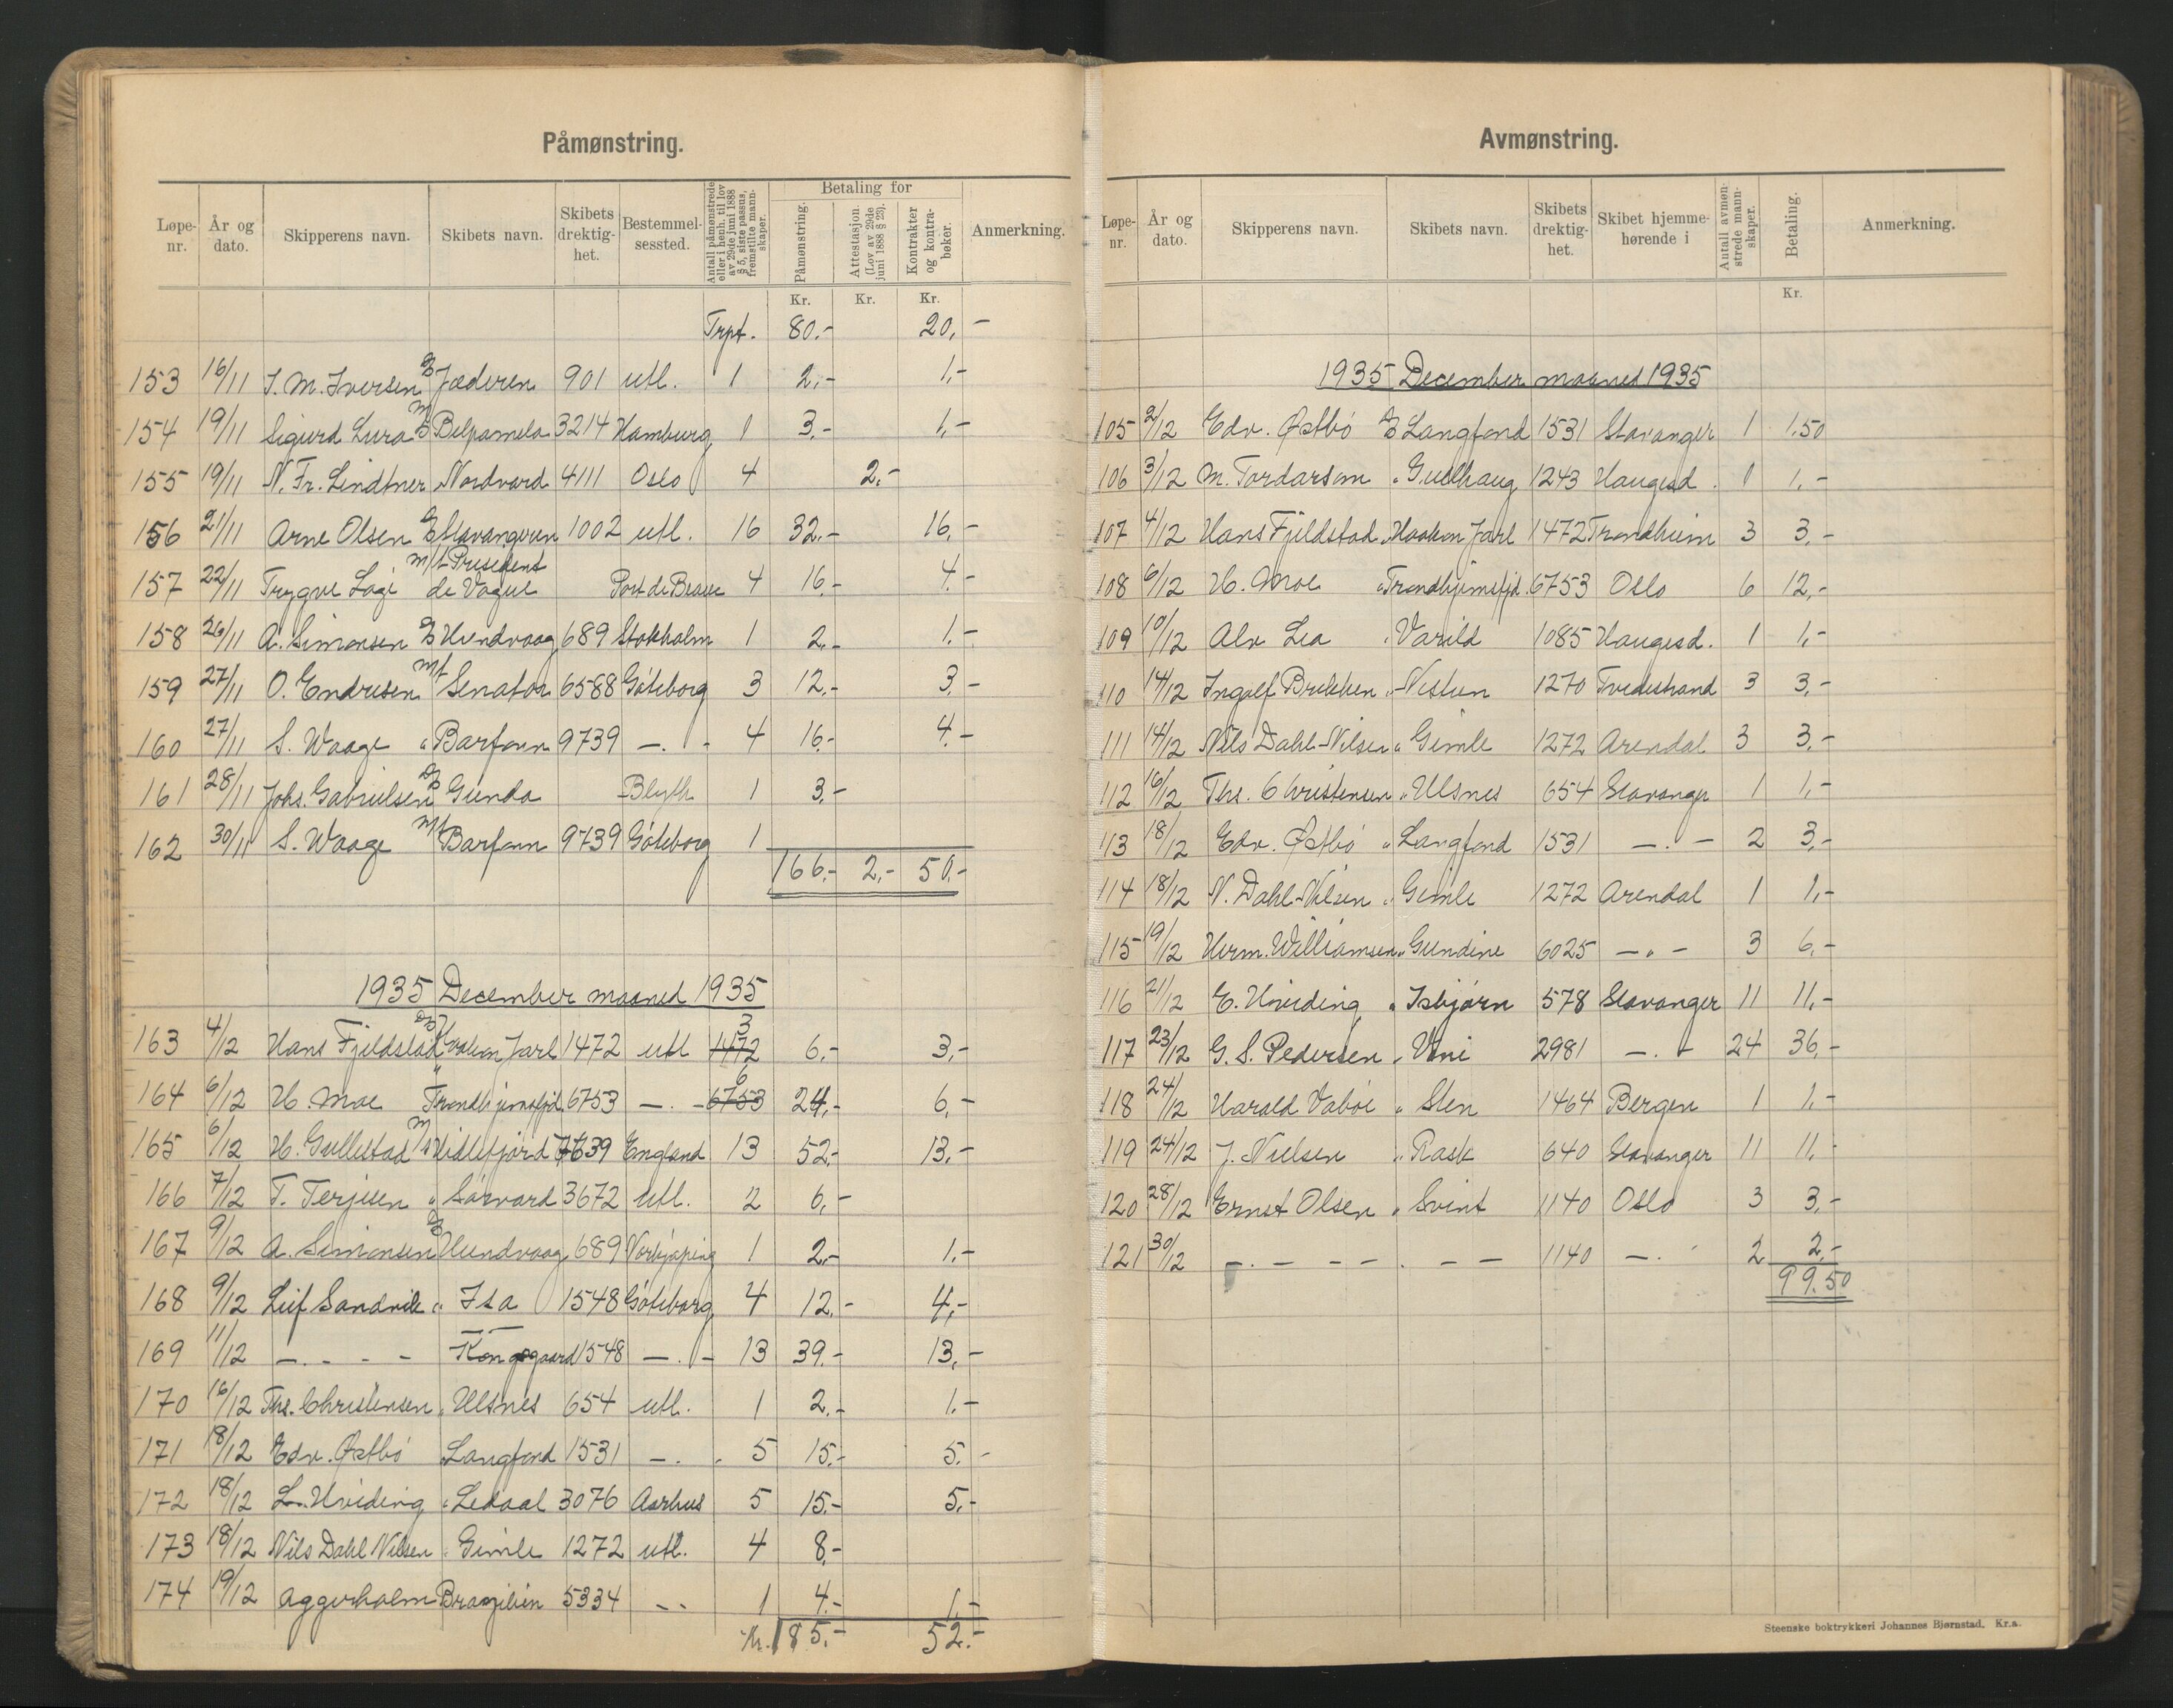 Påmønstring.
Løpe-nr. År og dato. Skipperens navn. Skibets navn. Skibets drektig-het. Bestemmel-sessted. Antall påmønstrede eller i henh. til lov av 29de juni 1888 § 5, siste passus, fremstilte mann-skaper. Betaling for Påmønstring. Attestasjon. (Lov av 29de juni 1888 § 23). Kontrakter og kontra-bøker. Anmerkning.
Kr. Kr. Kr.
Trpt. 80.- 20,-
153 16/11 J. M. Iversen D/S Jæderen 901 utl. 1 2,- 1,-
154 19/11 Sigurd Lura M/S Belpamela 3214 Hamburg 1 3,- 1,-
155 19/11 N. Fr. Lindtner Nordvard 4111 Oslo 4 2,-
156 21/11 Arne Olsen D/S Stavangeren 1002 utl. 16 32.- 16,-
157 22/11 Trygve Lagi m/t President de Vogue Port de Bouc 4 16,- 4,-
158 26/11 A. Simonsen D/S Hundvaag 689 Stokholm 1 2,- 1,-
159 27/11 O. Endresen M/t Senator 6588 Göteborg 3 12,- 3,-
160 27/11 S. Waage " Barfonn 9739 -.- 4 16,- 4,-
161 28/11 Johs. Gabrielsen D/S Gunda Blyth 1 3,-
162 30/11 S. Waage M/t Barfonn 9739 Göteborg 1
166,- 2,- 50,-
1935 December maaned 1935
163 4/12 Hans Fjeldstad D/S Haakon Jarl 1472 utl 1472 3 6,- 3,-
164 6/12 H. Moe " Trondhjemsfjd. 6753 -.- 6753 6 24,- 6,-
165 6/12 H. Gullestad M/S Vidlefjord 7639 England 13 52,- 13,-
166 7/12 T. Terjesen " Sörvard 3672 utl. 2 6,-
167 9/12 A. Simonsen D/S Hundvaag 689 Norkjøping 1 2,- 1,-
168 9/12 Leif Sandvik " Isa 1548 Göteborg 4 12,- 4,-
169 11/12 -.- - - Kongsgaard 1548 -.- 13 39,- 13,-
170 16/12 Ths. Christensen " Ulsnes 654 utl. 1 2,- 1,-
171 18/12 Edv. Østbö Langfond 1531 -.- 5 15,- 5,-
172 18/12 L. Hviding " Ledaal 3076 Aarhus 5 15,- 5,-
173 18/12 Nils Dahl Nilsen " Gimle 1272 utl. 4 8,-
174 19/12 Aggerholm Brazilien 5334 -- 1 4,- 1,-
Kr. 185,- 52,-
Avmønstring.
Løpe-nr. År og dato. Skipperens navn. Skibets navn. Skibets drektig-het. Skibet hjemme-hørende i Antall avmøn-strede mann-skaper. Betaling. Anmerkning.
Kr.
1935 December maaned 1935
105 2/12 Edv. Østbö D/S Langfond 1531 Stavanger 1 1.50
106 3/12 M. Tordarson " Gudhaug 1243 Haugesd. 1 1,-
107 4/12 Hans Fjeldstad " Haakon Jarl 1472 Trondheim 3 3,-
108 6/12 H. Moe " Trondhjemsfjd. 6753 Oslo 6 12,-
109 10/12 Alv Lea " Varild 1085 Haugesd. 1 1,-
110 14/12 Ingolf Brekken " Nestun 1270 Tvedestrand 3 3,-
111 14/12 Nils Dahl-Nilsen " Gimle 1272 Arendal 3 3,-
112 16/12 Ths. Christensen " Ulsnes 654 Stavanger 1 1,-
113 18/12 Edv. Østbö " Langfond 1531 -.- 2 3,-
114 18/12 N. Dahl-Nilsen " Gimle 1272 Arendal 1 1,-
115 19/12 Herm. Williamsen " Gundine 6025 -"- 3 6,-
116 21/12 E. Hviding " Isbjørn 578 Stavanger 11 11,-
117 23/12 G. S. Pedersen " Uni 2981 -.- 24 36,-
118 24/12 Harald Vaböe " Sten 1464 Bergen 1 1,-
119 24/12 J. Nielsen " Rask 640 Stavanger 11 11,-
120 28/12 Ernst Olsen " Svint 1140 Oslo 3 3,-
121 30/12 -.- - - . - - 1140 -.- 2 2,-
99.50
Steenske boktrykkeri Johannes Bjørnstad. Kr.a.